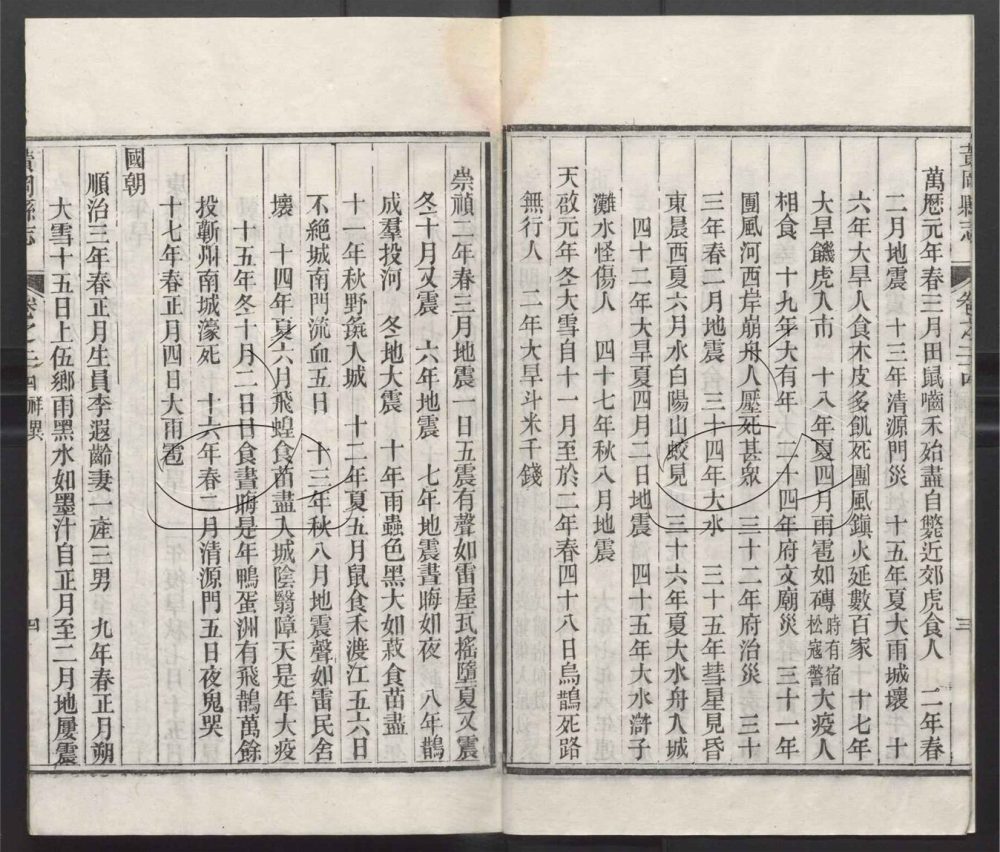 黃岡縣志　卷之二十四　三
萬歷元年春三月田鼠嚙禾殆盡自斃近郊虎食人　二年春
二月地震　十三年清源門災　十五年夏大雨城壞　十
六年大旱人食木皮多飢死團風鎮火延數百家　十七年
大旱饑虎入市　十八年夏四月雨雹如磚時有宿松寇警大疫人
相食　十九年大有年　二十四年府文廟災　三十一年
團風河西岸崩舟人壓死甚眾　三十二年府治災　三十
三年春二月地震　三十四年大水　三十五年彗星見昏
東晨西夏六月水白陽山蛟見　三十六年夏大水舟入城
四十二年大旱夏四月二日地震　四十五年大水滸子
灘水怪傷人　四十七年秋八月地震
天啟元年冬大雪自十一月至於二年春四十八日烏鵲死路
無行人　二年大旱斗米千錢
崇禎二年春三月地震一日五震有聲如雷屋瓦搖墮夏又震
冬十月又震　六年地震　七年地震晝晦如夜　八年鵲
成羣投河　冬地大震　十年雨蟲色黑大如菽食苗盡
十一年秋野彘人城　十二年夏五月鼠食禾渡江五六日
不絕城南門流血五日　十三年秋八月地震聲如雷民舍
壞　十四年夏六月飛蝗食苗盡入城陰翳障天是年大疫
十五年冬十月二日日食晝晦是年鴨蛋洲有飛鵲萬餘
投蘄州南城濠死　十六年春二月清源門五日夜鬼哭
十七年春正月四日大雨雹
國朝
順治三年春正月生員李遐齡妻一產三男　九年春正月朔
大雪十五日上伍鄉雨黑水如墨汁自正月至二月地屢震
黃岡縣志　卷之二十四祥異　四